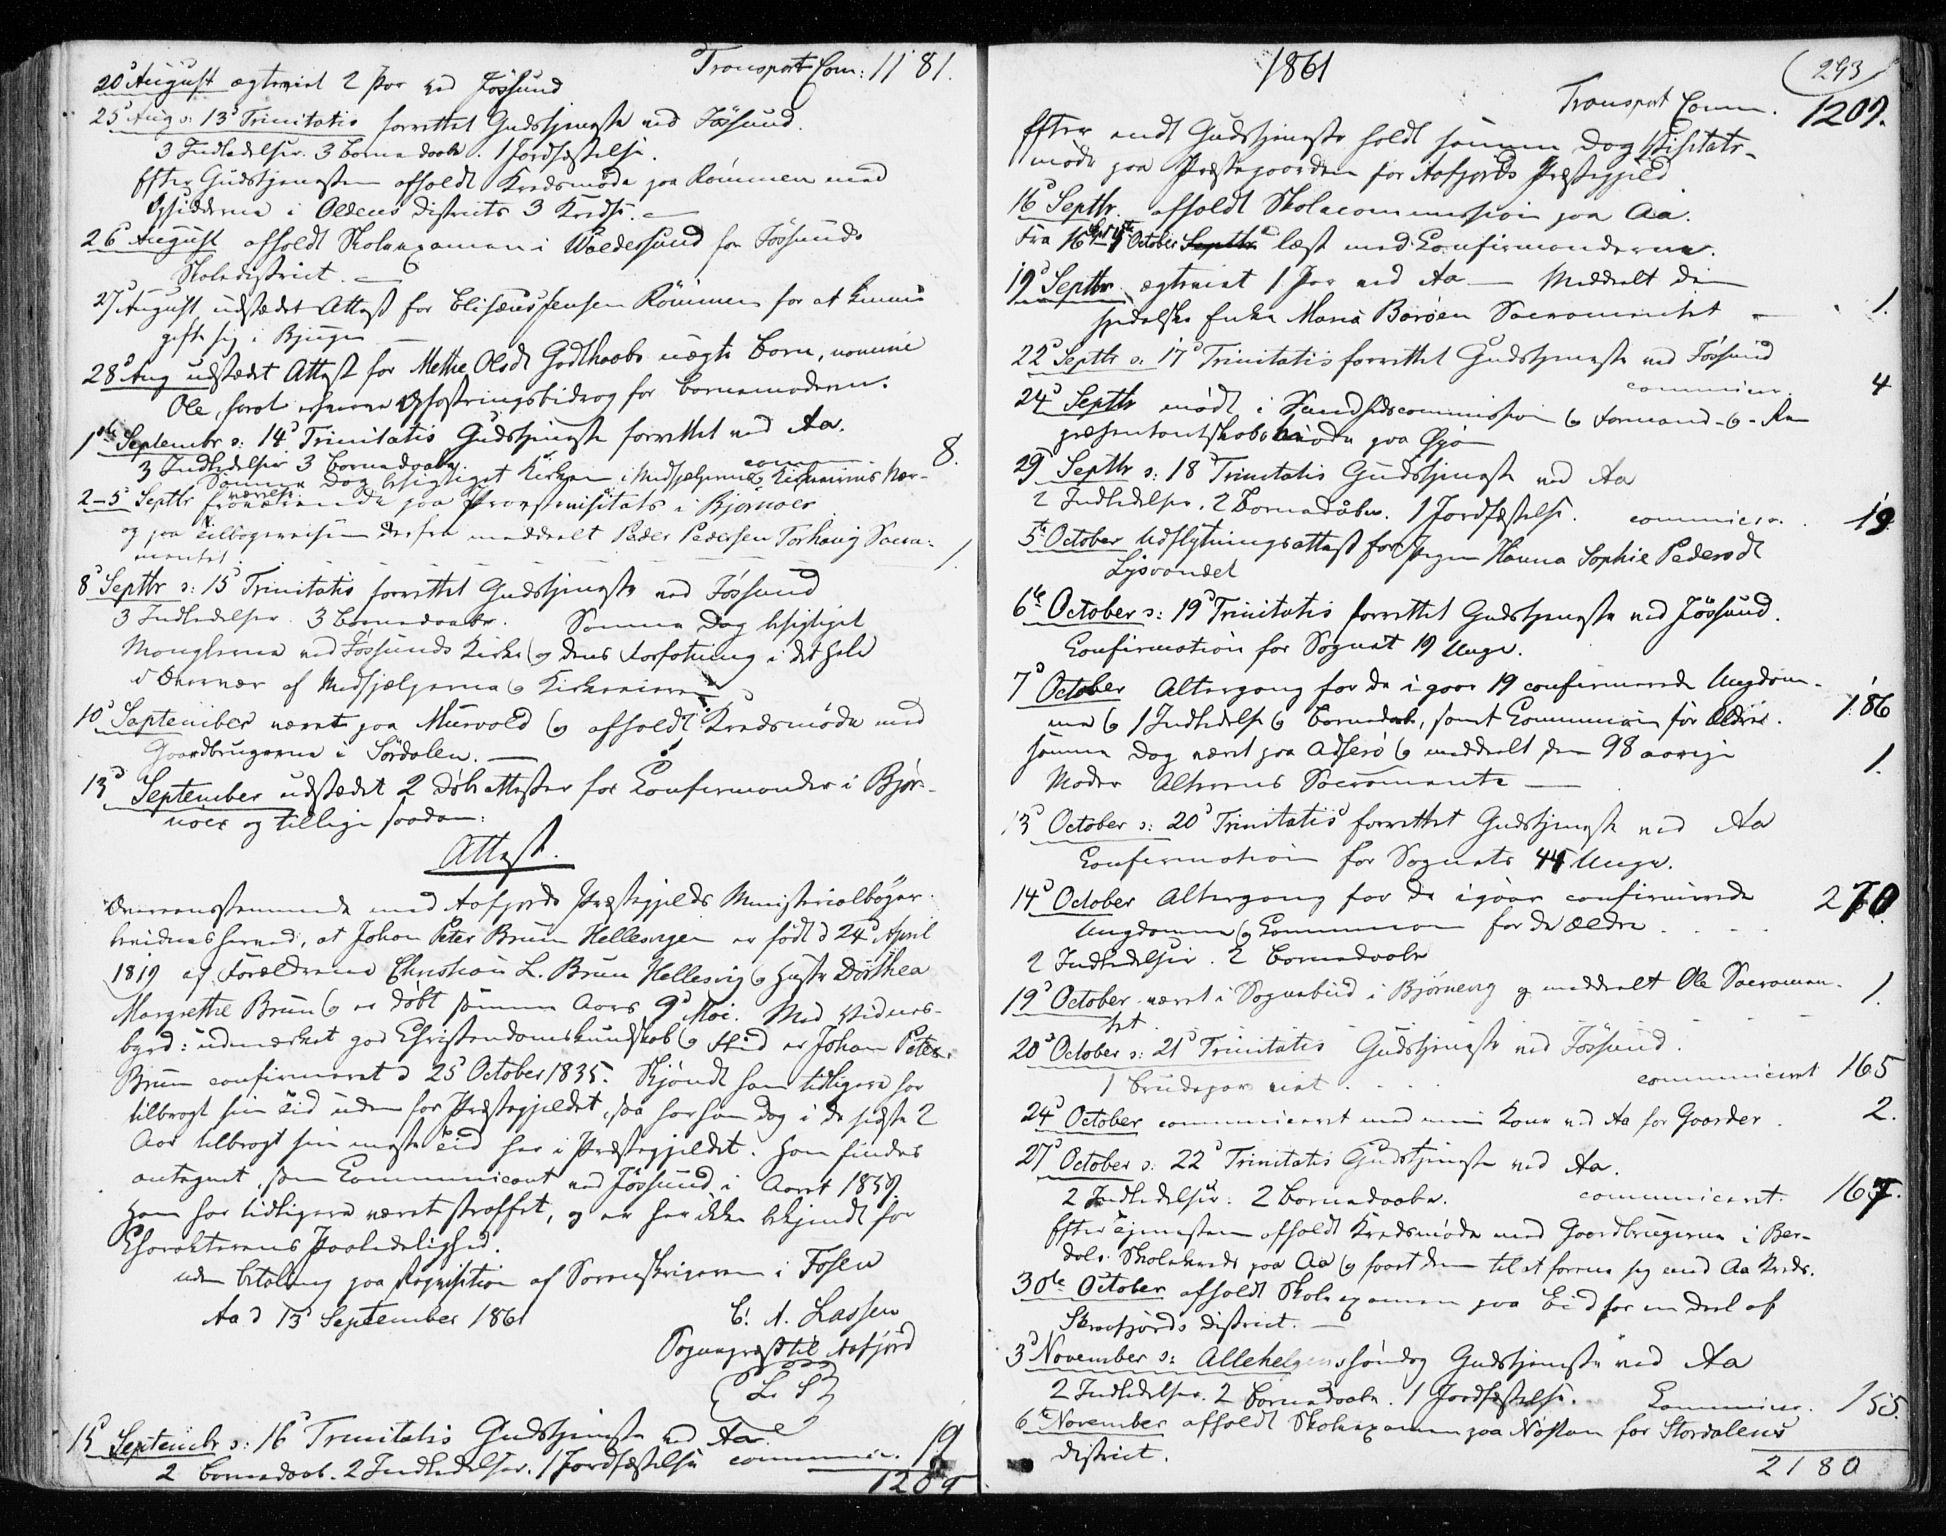 Transport Com: 1181.
20d August ægteviet 2 Par ved Jössund
25d Aug. s: 13d Trinitatis forrettet Gudstjeneste ved Jössund.
3 Indledelser. 3 Barnedaab. 1 Jordfæstelse.
Efter Gudstjenesten afholdt Kredsmöde paa Römmen med
Opsidderne i Oldens districts 3 Kreds.
26 August afholdt Skoleexamen i Valdersund for Jössunds
Skoledistrict.
27 August udstædet Attest for Elisæus Jensen Römmen for at kunne
gifte sig i Bjugn
28d Aug udstædet Attest for Methe Olsdt Godthaabs uægte Barn, nomine
Ole, for at erhverve Opfostringsbidrag for Barnemoderen.
1ste Septembr s: 14d Trinitatis Gudstjeneste forrettet ved Aa.
3 Indledelser 3 Barnedaab. comm 8.
Samme Dag besigtiget Kirken i Medhjelpernes Kirkeværens Nær-
værelse.
2-5 Septbr fraværende paa Provstevisitats i Björnöer
og paa Tilbagereisen derfra meddeelt Peder Pedersen Torhaug Sacra-
mentet. 1.
8d Septbr s: 15d Trinitatis forrettet Gudstjeneste ved Jössund
3 Indledelser. 3 Barnedaabe. Samme Dag besigtiget
Manglerne ved Jössunds Kirke og dens Forfatning i det hele
i Overvær af Medhjælperne og Kirkeværen
10d September været paa Murvold og afholdt Kredsmöde med
Gaardbrugerne i Sördalen.
13d September udstædet 2 Döbeattester for Confirmander i Björ-
nöer og tillige saadan:
Attest.
Overensstemmende med Aafjords Præstegjelds Ministerialböger
bevidnes herved, at Johan Peter Bruun Hellesvigen er födt d 24d April
1819 af Forældrene Christian L. Bruun Hellesvig og Hustr Dorthea
Margrethe Bruun og er döbt samme Aars 9d Mai. Med Vidnes-
byrd: udmærket god Christendomskundskab og Flid er Johan Peter
Bruun confirmeret d 25d October 1835. Skjöndt han tidligere har
tilbragt sin Tid uden for Præstegjeldet, saa har han dog i de sidste 2
Aar tilbragt sin meste Tid her i Præstegjeldet. Han findes
antegnet som Communicant ved Jössund i Aaret 1859.
Han har tidligere været straffet, og er her ikke bekjendt for
Charakterens Paalidelighed.
uden betaling paa Requisition af Sorenskriveren i Fosen
Aa d 13d September 1861
C. A. Lassen
Sognepræst til Aafjord
(L. S)
15d Septembr s: 16d Trinitatis Gudstjeneste ved Aa. 19
2 Barnedaab. 2 Indledelser. 1 Jordfæstelse communic.
1209
1861
293
Transport Comm. 1209.
Efter endt Gudstjeneste holdt samme Dag Visitats-
möde paa Præstegaarden for Aafjords Præstegjeld
16d Septbr. afholdt Skolecommission paa Aa.
Fra 16d Sept til 5te October Septbr læst med Confirmanderne.
19d Septbr. ægteviet 1 Par ved Aa — Meddeelt den
spedalske Enke Maria Baröen Sacramentet 1.
22d Septbr s: 17d Trinitatis forrettet Gudstjeneste ved Jössund
communic. 4
24d Septbr mödt i Sundhedscommission og Formand- og Re-
præsentantskabsmöde paa By
29d Septbr s: 18 Trinitatis Gudstjeneste ved Aa
2 Indledelser. 2 Barnedåbe. 1 Jordfæstelse. communic. 19
5te October Udflytningsattest for Pigen Hanna Sophie Pedersdt
Lysvandet
6te October s: 19d Trinitatis forrettet Gudstjeneste ved Jössund.
Confirmation for Sognet 19 Unge.
7d October Altergang for de i gaar 19 confirmerede Ungdom-
me og 1 Indledelse og Barnedaab, samt Communion for Ældre. 186
samme Dag været paa Adserö og meddeelt den 98 aarige
Moder Alterens Sacramente 1.
13d October s: 20d Trinitatis forrettet Gudstjeneste ved Aa
Confirmation for Sognets 44 Unge.
14d October Altergang for de igaar confirmerede
Ungdomme og Communion for de Ældre 270
2 Indledelser. 2 Barnedaabe
19d October været i Sognebud i Björnevig og meddeelt Ole Sacramen-
tet. 1.
20d October s: 21d Trinitatis Gudstjeneste ved Jössund.
1 Brudepar viet. communiceret 165
24d October communiceret med min Kone ved Aa for Gaarder. 2.
27d October s: 22d Trinitatis Gudstjeneste ved Aa.
2 Indledelser. 2 Barnedaabe. communiceret. 167.
Efter Tjenesten afholdt Kredsmöde med Gaardbrugerne i Ber-
dals Skolekreds paa Aa og faaet dem til at forene sig med Aa Kreds.
30te October afholdt Skoleexamen paa Eid for en Deel af
Skrøfjords District.
3d November s: Allehelgenssöndag Gudstjeneste ved Aa
2 Indledelser. 2 Barnedaabe. 1 Jordfæstelse. Communic. 155.
6te November afholdt Skoleexamen paa Næstan for Stordalens
district.
2180